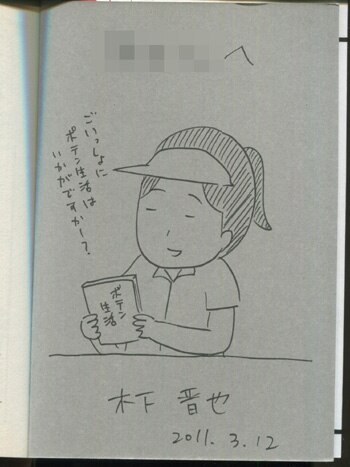 へ
ごいっしょに
ポテン生活は
いかがですかー？
ポテン
生活
木下 晋也
2011. 3. 12